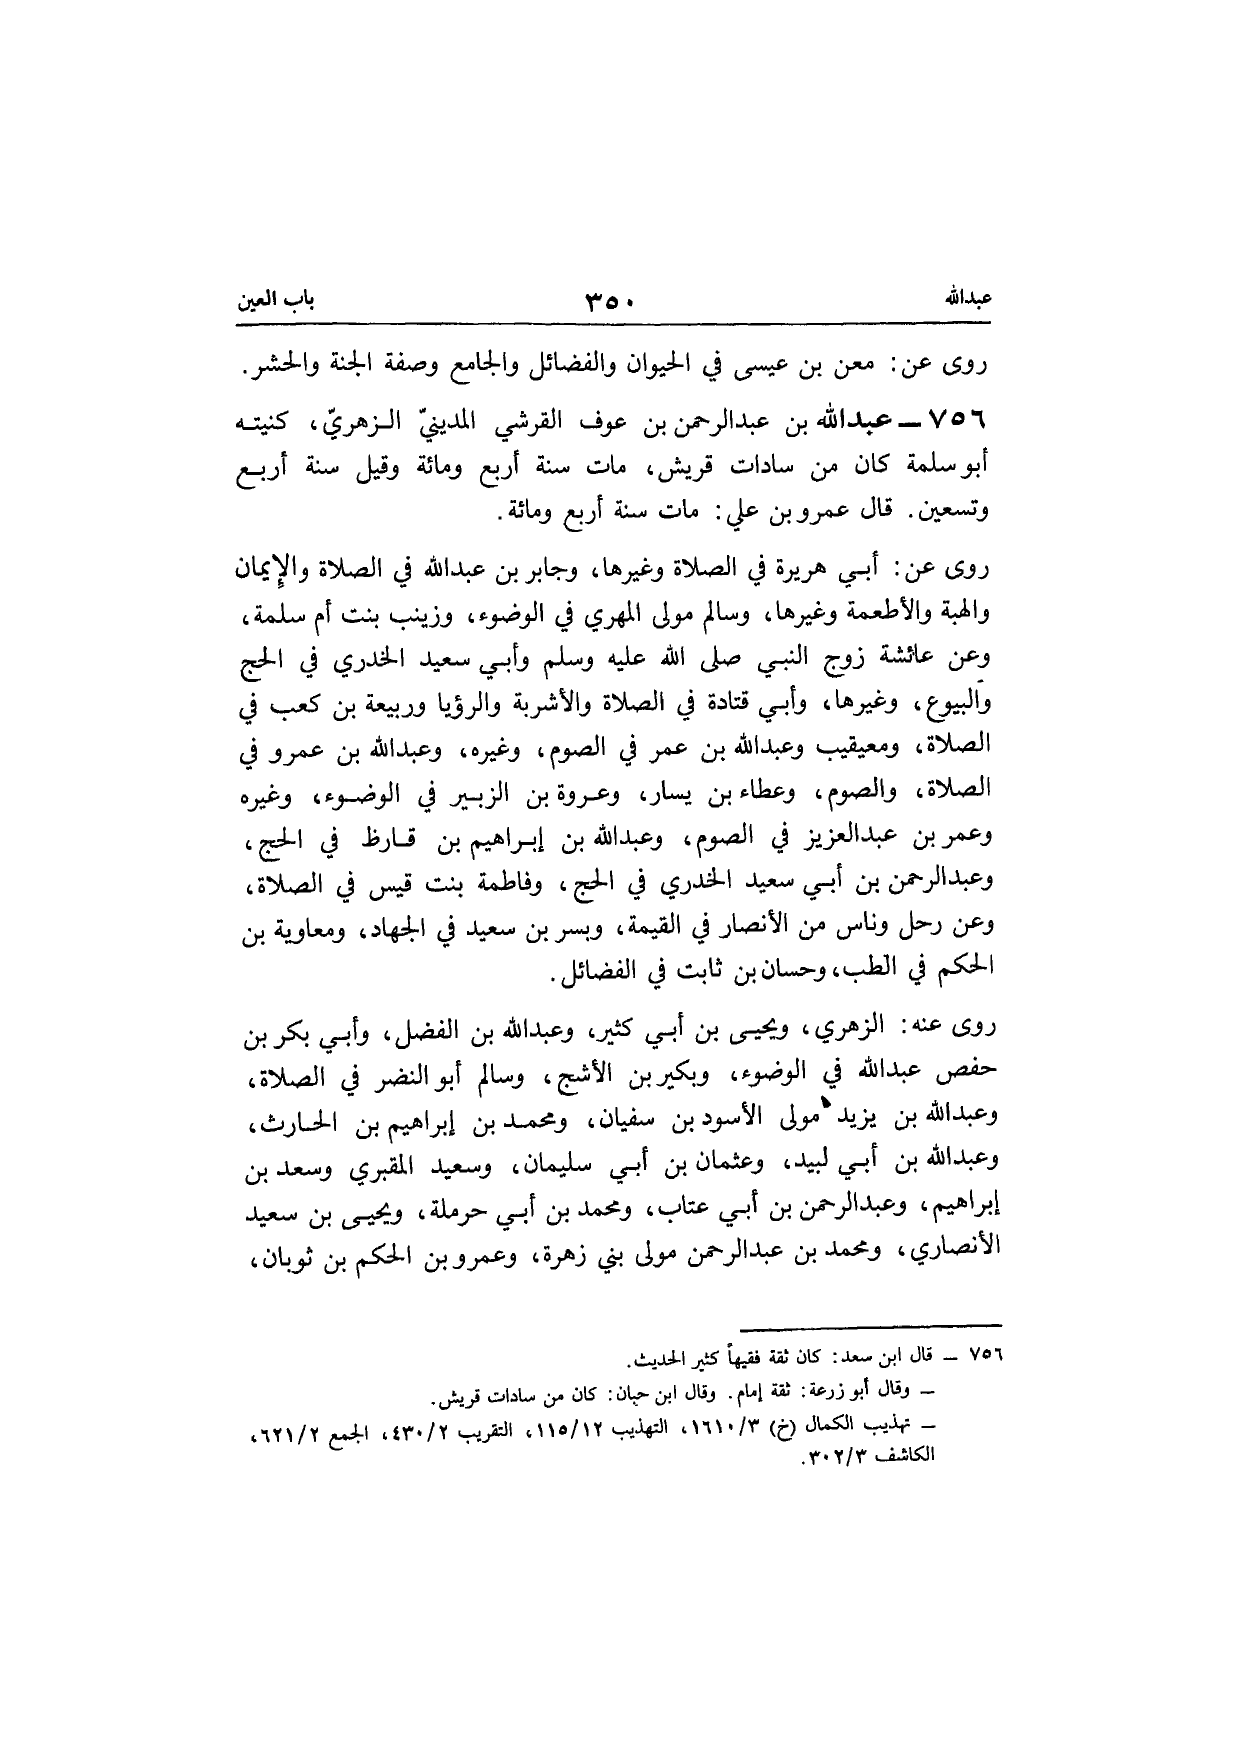 عبدالله ٣٥٠ باب العين
روى عن: معن بن عيسى في الحيوان والفضائل والجامع وصفة الجنة والحشر.
٧٥٦ ــ عبدالله بن عبدالرحمن بن عوف القرشي المدينيّ الـزهريّ، كنيته
أبو سلمة كان من سادات قريش، مات سنة أربع ومائة وقيل سنة أربع
وتسعين. قال عمرو بن علي: مات سنة أربع ومائة.
روى عن: أبي هريرة في الصلاة وغيرها، وجابر بن عبدالله في الصلاة والإيمان
والهبة والأطعمة وغيرها، وسالم مولى المهري في الوضوء، وزينب بنت أم سلمة،
وعن عائشة زوج النبي صلى الله عليه وسلم وأبي سعيد الخدري في الحج
والبيوع، وغيرها، وأبي قتادة في الصلاة والأشربة والرؤيا وربيعة بن كعب في
الصلاة، ومعيقيب وعبدالله بن عمر في الصوم، وغيره، وعبدالله بن عمرو في
الصلاة، والصوم، وعطاء بن يسار، وعروة بن الزبير في الوضوء، وغيره
وعمر بن عبدالعزيز في الصوم، وعبدالله بن إبراهيم بن قارظ في الحج،
وعبدالرحمن بن أبي سعيد الخدري في الحج، وفاطمة بنت قيس في الصلاة،
وعن رحل وناس من الأنصار في القيمة، وبسر بن سعيد في الجهاد، ومعاوية بن
الحكم في الطب، وحسان بن ثابت في الفضائل.
روى عنه: الزهري، ويحيى بن أبي كثير، وعبدالله بن الفضل، وأبي بكر بن
حفص عبدالله في الوضوء، وبكير بن الأشج، وسالم أبو النضر في الصلاة،
وعبدالله بن يزيد مولى الأسود بن سفيان، ومحمد بن إبراهيم بن الحارث،
وعبدالله بن أبي لبيد، وعثمان بن أبي سليمان، وسعيد المقبري وسعد بن
إبراهيم، وعبدالرحمن بن أبي عتاب، ومحمد بن أبي حرملة، ويحيى بن سعيد
الأنصاري، ومحمد بن عبدالرحمن مولى بني زهرة، وعمرو بن الحكم بن ثوبان،
٧٥٦ ــ قال ابن سعد: كان ثقة فقيهاً كثير الحديث.
ــ وقال أبو زرعة: ثقة إمام. وقال ابن حبان: كان من سادات قريش.
ــ تهذيب الكمال (خ) ١٦١٠/٣، التهذيب ١١٥/١٢، التقريب ٤٣٠/٢، الجمع ٦٢١/٢،
الكاشف ٣٠٢/٣.